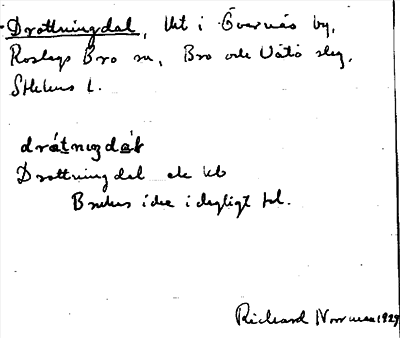 Drottningdal, lht i Övernäs by,
Roslags Bro sn, Bro och Vätö slg,
Sthlms l.
drátnıŋdáɫ
Drottningdal ek kb
Brukas icke i dagligt tal.
Richard Norrman 1929